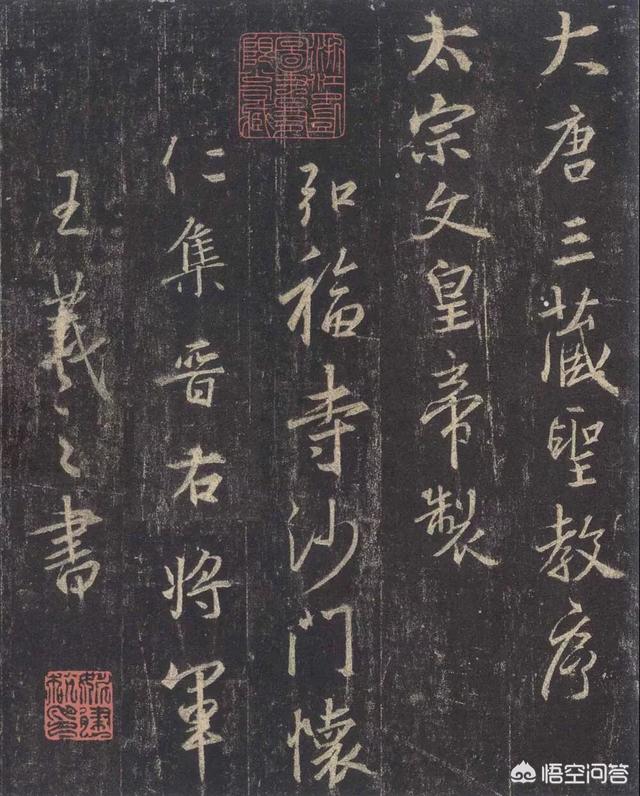 大唐三藏聖教序
太宗文皇帝製
弘福寺沙門懷
仁集晋右將軍
王羲之書
悟空问答